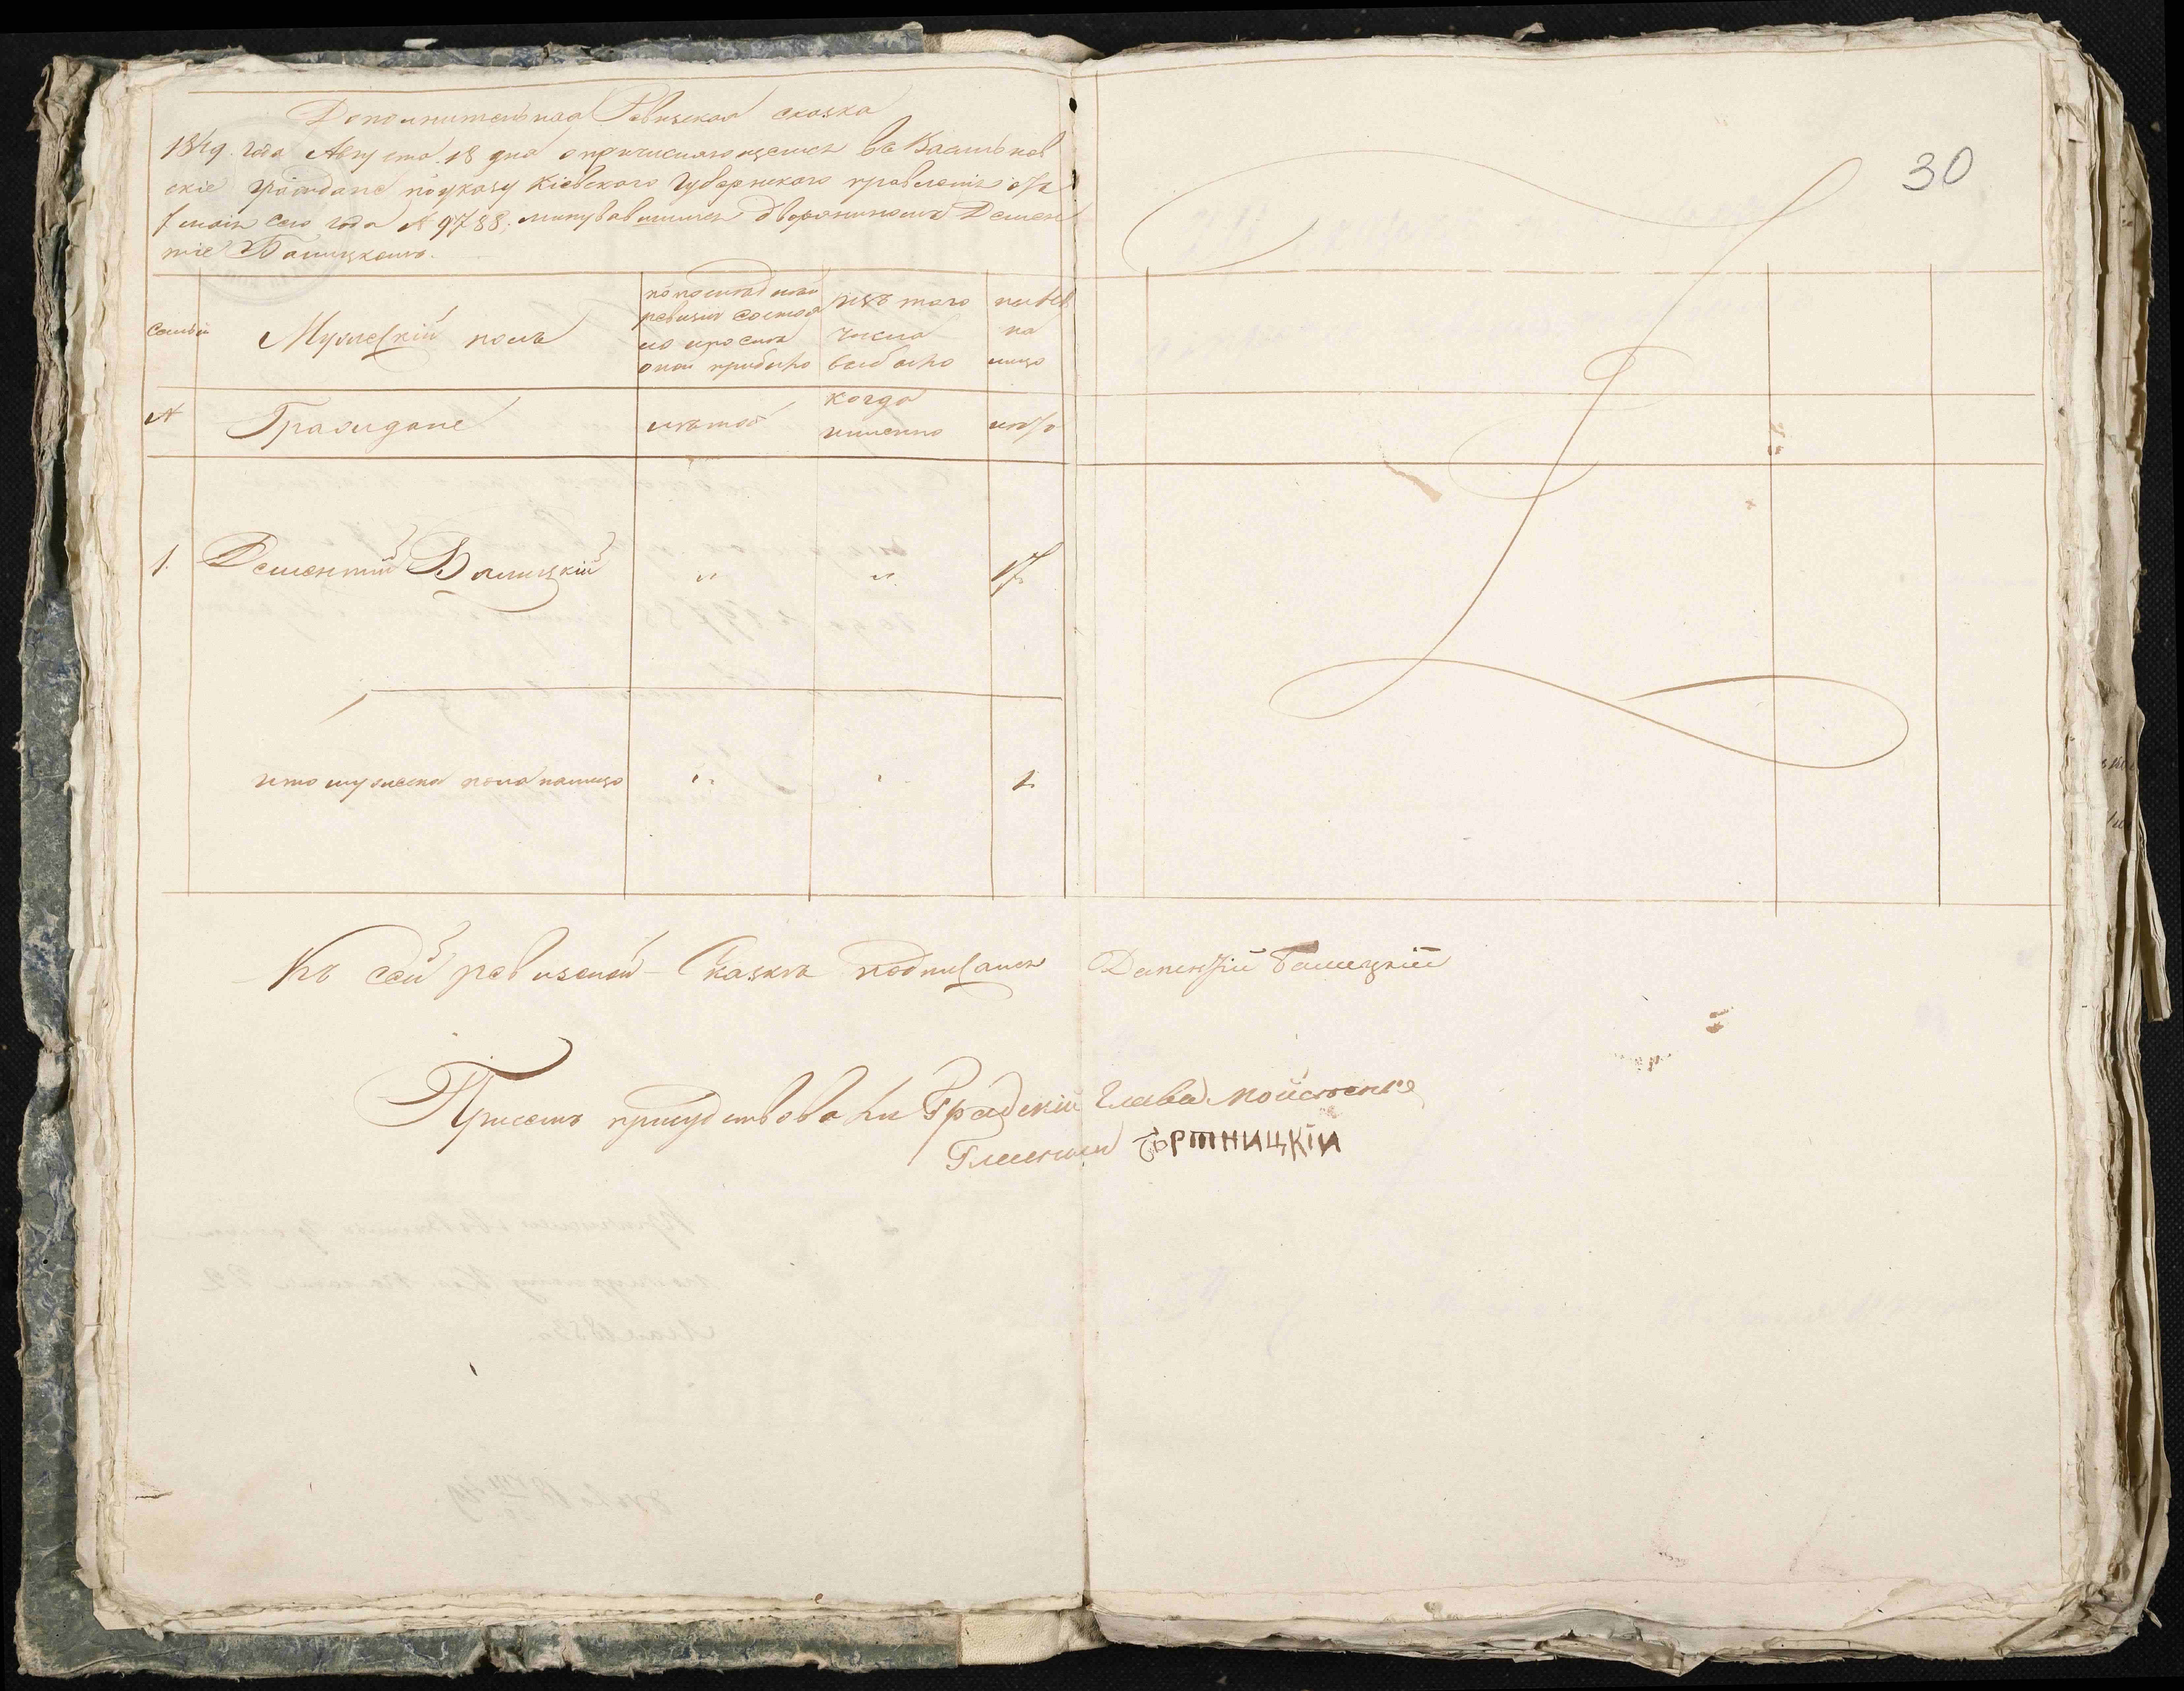 Дополнительная Ревизская сказка
1849. года Августа 18 дня о причисляющемся въ Васильков
скіе граждане по указу Кіевскаго Губернскаго правленія отъ
7 маія сего года № 9788, именовавшимся дворяниномъ Демен
тіе Балицкомъ.
30
семьи
Мужескій полъ
по последней
ревизіи состоя
ло и после
оной прибыло
изъ того
числа
выбыло
ныне
на
лицо
№
Граждане
лета
когда
именно
лета
1. Дементій Балицкій " " 17.
итого мужеска пола налицо " " 1.
Къ сей ревизской Сказке подписался Дементій Балицкій
Присемъ присудствовали Градскій Глава Мойсеенко
Гласный